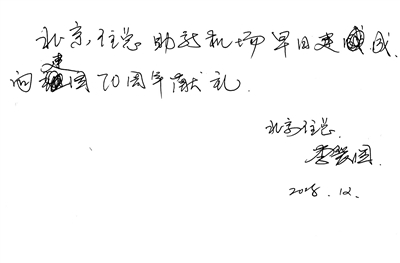 北京住总助新机场早日建成.
向建国70周年献礼.
北京住总.
李国.
2018.12.